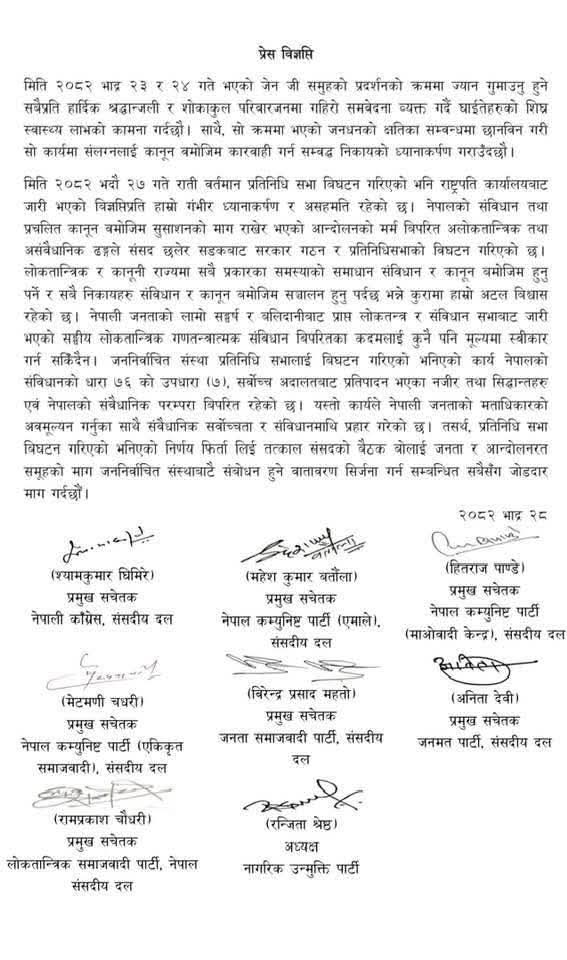 प्रेस विज्ञप्ति
मिति २०८२ भाद्र २३ र २४ गते भएको जेन जी समुहको प्रदर्शनको क्रममा ज्यान गुमाउनु हुने
सबैप्रति हार्दिक श्रद्धान्जली र शोकाकुल परिवारजनमा गहिरो समवेदना व्यक्त गर्दै घाईतेहरुको शिघ्र
स्वास्थ्य लाभको कामना गर्दछौ। साथै, सो क्रममा भएको जनधनको क्षतिका सम्वन्धमा छानविन गरी
सो कार्यमा संलग्नलाई कानून वमोजिम कारवाही गर्न सम्वद्ध निकायको ध्यानाकर्षण गराउँदछौ।
मिति २०८२ भदौ २७ गते राती वर्तमान प्रतिनिधि सभा विघटन गरिएको भनि राष्ट्रपति कार्यालयबाट
जारी भएको विज्ञप्तिप्रति हाम्रो गंभीर ध्यानाकर्षण र असहमति रहेको छ। नेपालको संविधान तथा
प्रचलित कानून वमोजिम सुसाशनको माग राखेर भएको आन्दोलनको मर्म बिपरित अलोकतान्त्रिक तथा
असंवैधानिक ढङ्गले संसद छलेर सडकबाट सरकार गठन र प्रतिनिधिसभाको विघटन गरिएको छ।
लोकतान्त्रिक र कानूनी राज्यमा सबै प्रकारका समस्याको समाधान संविधान र कानून बमोजिम हुनु
पर्ने र सबै निकायहरु संविधान र कानून बमोजिम सञ्चालन हुनु पर्दछ भन्ने कुरामा हाम्रो अटल विश्वास
रहेको छ। नेपाली जनताको लामो सङ्घर्ष र बलिदानीबाट प्राप्त लोकतन्त्र र संविधान सभाबाट जारी
भएको सङ्घीय लोकतान्त्रिक गणतन्त्रात्मक संविधान बिपरितका कदमलाई कुनै पनि मूल्यमा स्वीकार
गर्न सकिँदैन। जननिर्वाचित संस्था प्रतिनिधि सभालाई बिघटन गरिएको भनिएको कार्य नेपालको
संविधानको धारा ७६ को उपधारा (७), सर्वोच्च अदालतबाट प्रतिपादन भएका नजीर तथा सिद्धान्तहरु
एवं नेपालको संवैधानिक परम्परा बिपरित रहेको छ। यस्तो कार्यले नेपाली जनताको मताधिकारको
अवमूल्यन गर्नुका साथै संवैधानिक सर्वोच्चता र संविधानमाथि प्रहार गरेको छ। तसर्थ, प्रतिनिधि सभा
बिघटन गरिएको भनिएको निर्णय फिर्ता लिई तत्काल संसदको बैठक बोलाई जनता र आन्दोलनरत
समूहको माग जननिर्वाचित संस्थाबाटै संबोधन हुने वातावरण सिर्जना गर्न सम्बन्धित सबैसँग जोडदार
माग गर्दछौँ।
२०८२ भाद्र २८
(श्यामकुमार घिमिरे)
प्रमुख सचेतक
नेपाली काँग्रेस, संसदीय दल
(महेश कुमार बर्तौला)
प्रमुख सचेतक
नेपाल कम्युनिष्ट पार्टी (एमाले),
संसदीय दल
(हितराज पाण्डे)
प्रमुख सचेतक
नेपाल कम्युनिष्ट पार्टी
(माओवादी केन्द्र), संसदीय दल
(मेटमणी चधरी)
प्रमुख सचेतक
नेपाल कम्युनिष्ट पार्टी (एकिकृत
समाजवादी), संसदीय दल
(विरेन्द्र प्रसाद महतो)
प्रमुख सचेतक
जनता समाजवादी पार्टी, संसदीय
दल
(अनिता देवी)
प्रमुख सचेतक
जनमत पार्टी, संसदीय दल
(रामप्रकाश चौधरी)
प्रमुख सचेतक
लोकतान्त्रिक समाजवादी पार्टी, नेपाल
संसदीय दल
(रन्जिता श्रेष्ठ)
अध्यक्ष
नागरिक उन्मुक्ति पार्टी